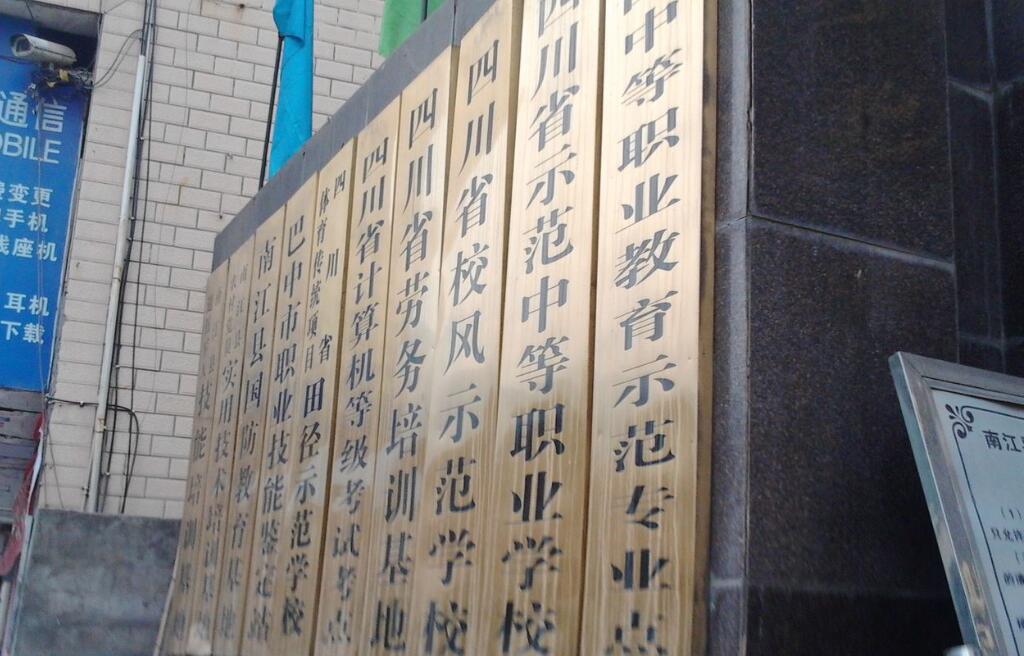 通信
OBILE
变更
手机
线座机
耳机
下载
中等职业教育示范专业点
四川省示范中等职业学校
四川省校风示范学校
四川省劳务培训基地
四川省计算机等级考试考点
四川省
体育传统项目田径示范学校
巴中市职业技能鉴定站
南江县国防教育基地
南江县
实用技术培训基地
技能培训基地
南江
(1)